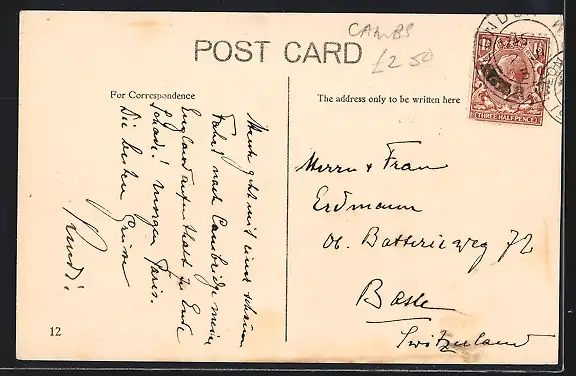 CAMBS
£2.50
POST CARD
For Correspondence
The address only to be written here
THREE HALFPENCE
Heute geht mit einer schönen
Fahrt nach Cambridge mein
England aufenthalt zu Ende
Schade! morgen Paris.
Die besten Grüsse
Ruedi!
Herrn & Frau
Erdmann
Ob. Batterieweg 72
Basle
Switzerland
12